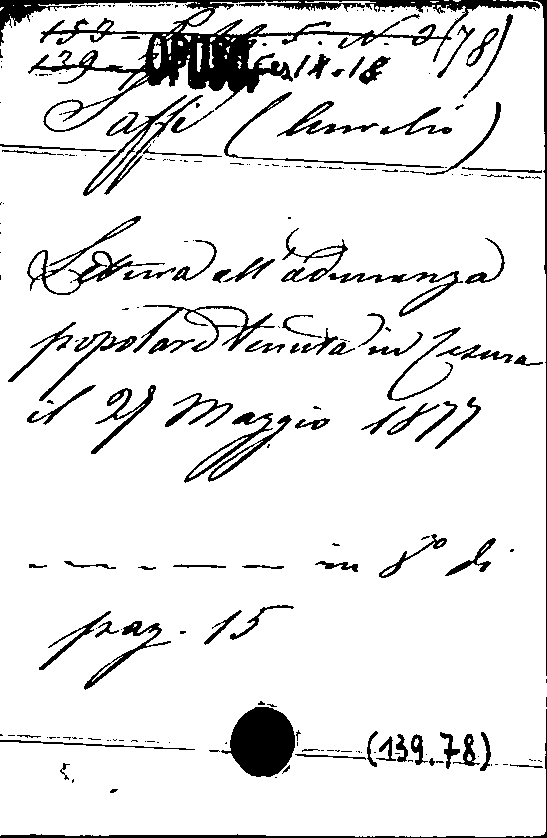 OPUSC.
Saffi (Aurelio)
Lettura all'adunanza
popolare tenuta in Cesena
il 27 Maggio 1877
- - - - - - in 8° di
pag. 15
(139.78)